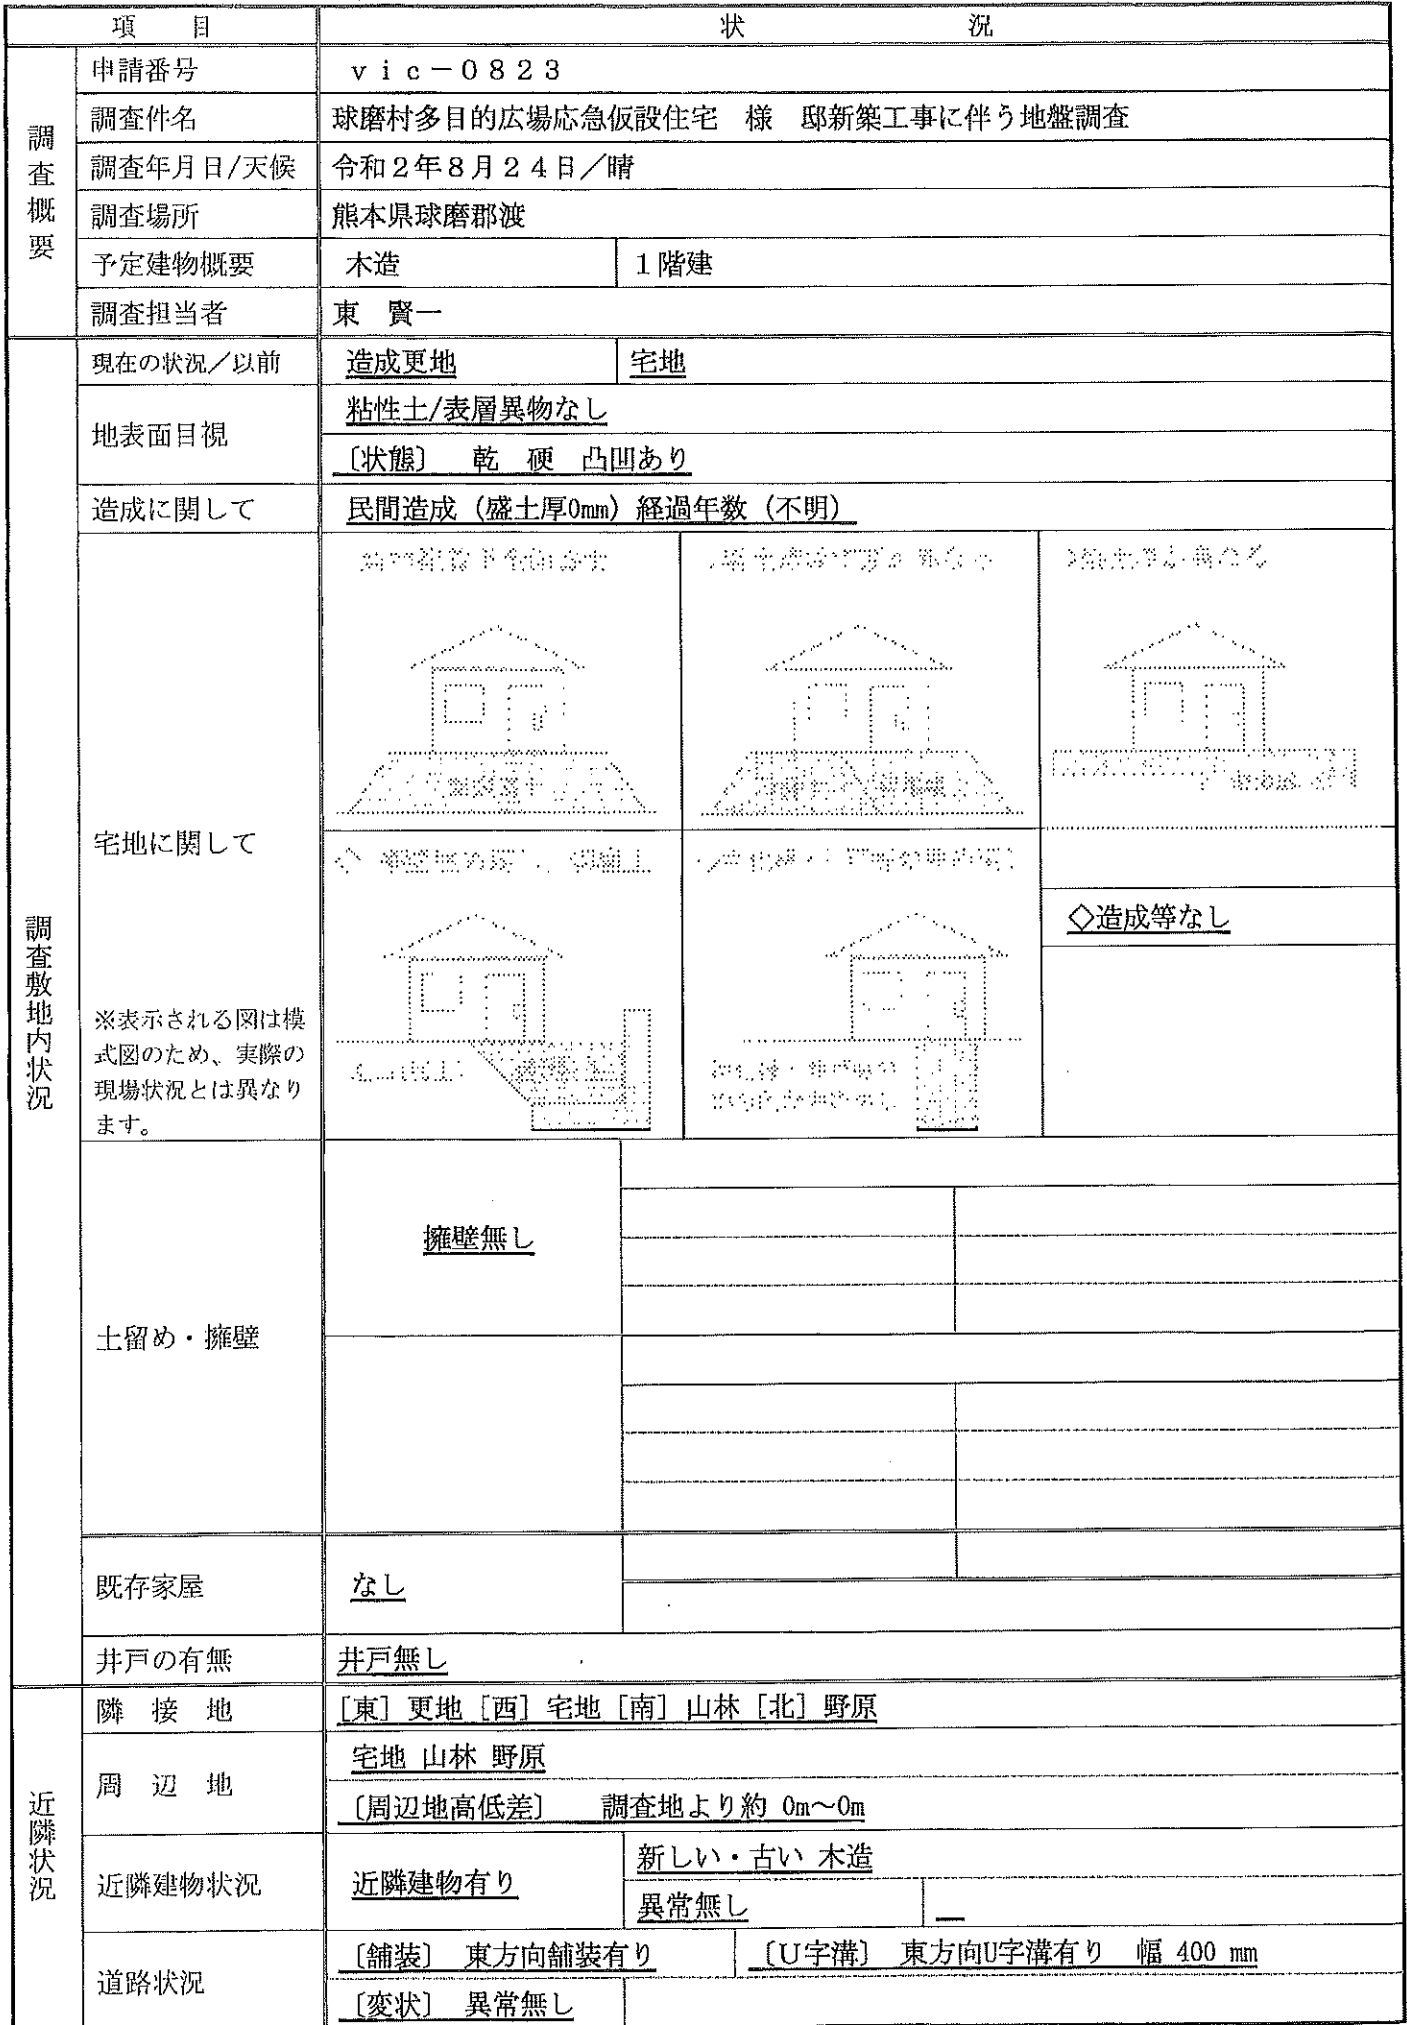 項 目 状 況
調査概要
申請番号 vic－0823
調査件名 球磨村多目的広場応急仮設住宅 様 邸新築工事に伴う地盤調査
調査年月日/天候 令和2年8月24日／晴
調査場所 熊本県球磨郡渡
予定建物概要 木造 1階建
調査担当者 東 賢一
調査敷地内状況
現在の状況／以前 造成更地 宅地
地表面目視 粘性土/表層異物なし
〔状態〕 乾 硬 凸凹あり
造成に関して 民間造成（盛土厚0mm）経過年数（不明）
宅地に関して
◇造成等なし
※表示される図は模
式図のため、実際の
現場状況とは異なり
ます。
土留め・擁壁 擁壁無し
既存家屋 なし
井戸の有無 井戸無し
近隣状況
隣接地 ［東］更地［西］宅地［南］山林［北］野原
周辺地 宅地 山林 野原
〔周辺地高低差〕 調査地より約 0m～0m
近隣建物状況 近隣建物有り 新しい・古い 木造
異常無し
道路状況 〔舗装〕 東方向舗装有り 〔U字溝〕 東方向U字溝有り 幅 400 mm
〔変状〕 異常無し